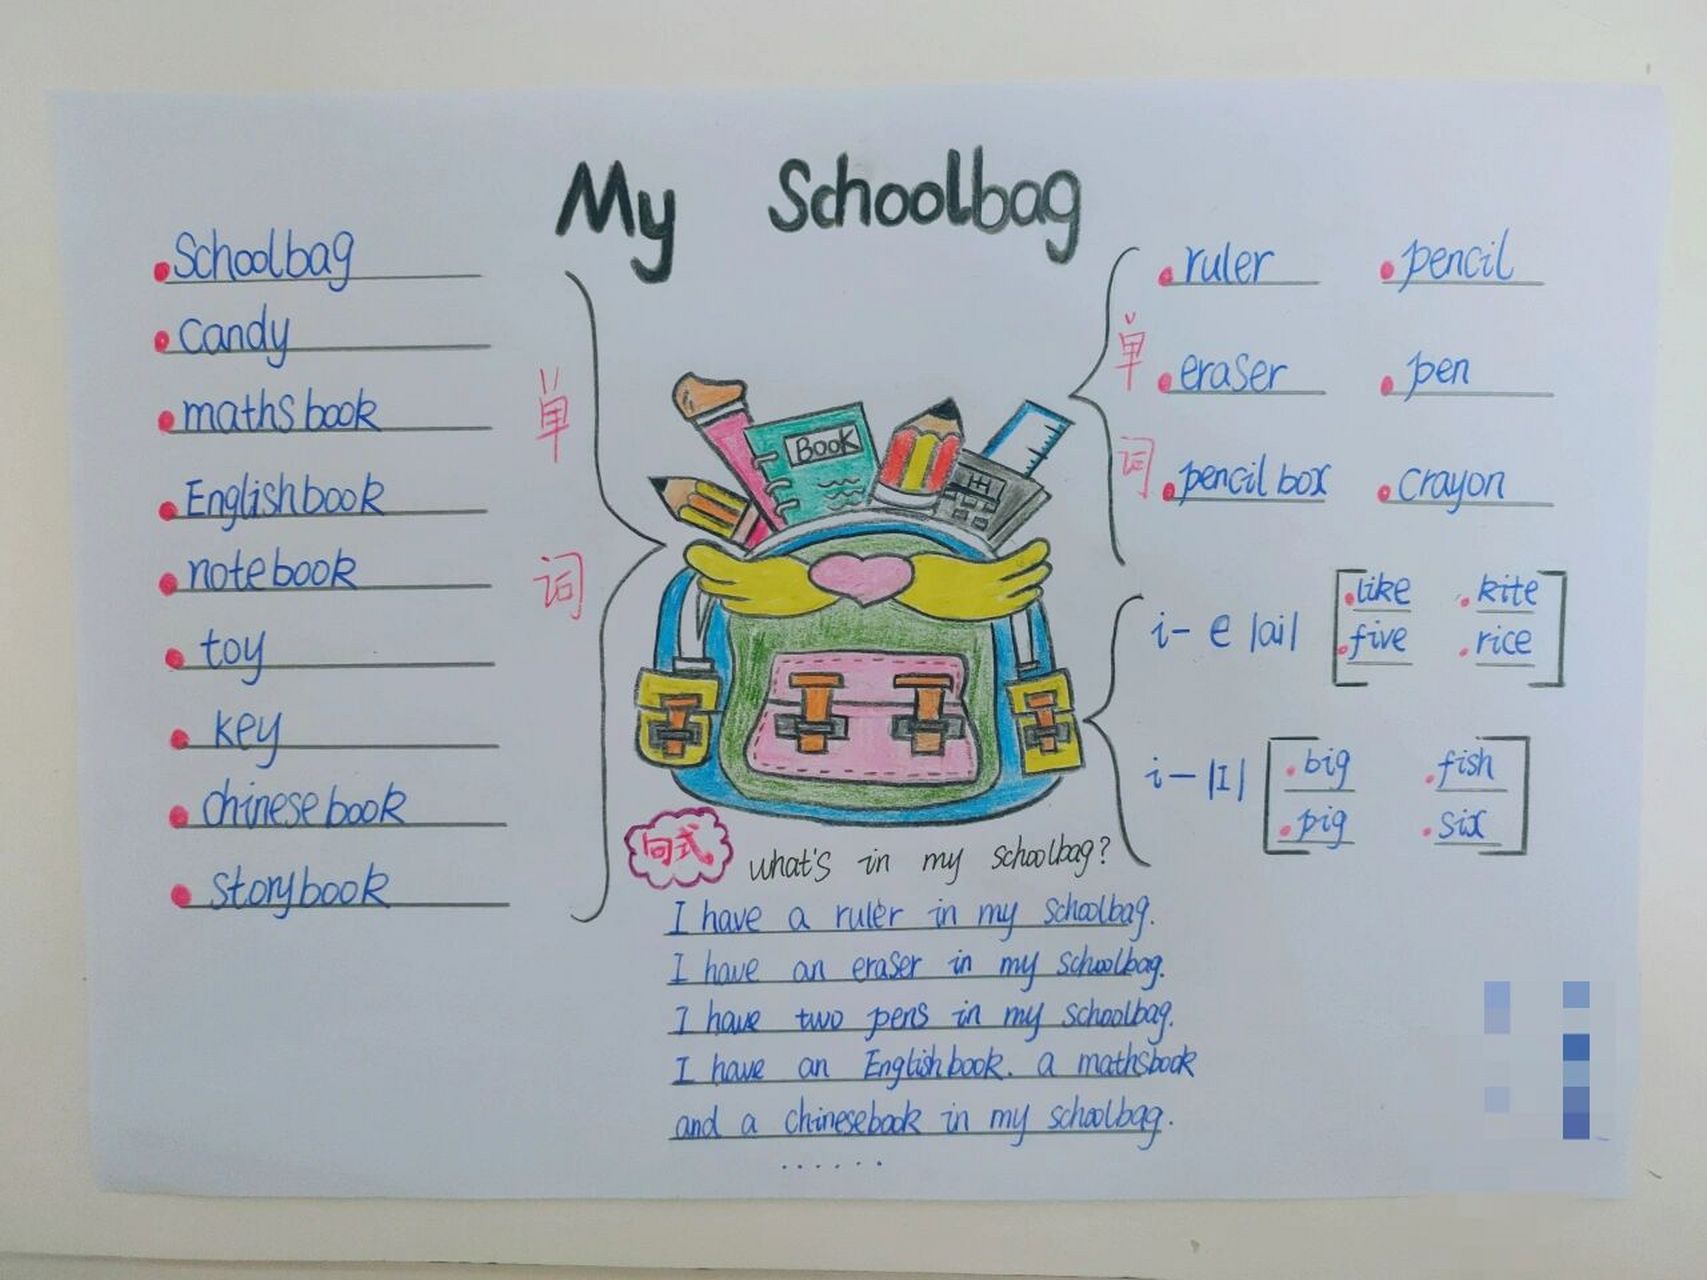 My Schoolbag
Schoolbag
candy
maths book
Englishbook
notebook
toy
key
chinese book
storybook
单
词
BOOK
单
词
ruler pencil
eraser pen
pencil box crayon
i-e |ai|
like kite
five rice
i-|I|
big fish
pig six
句式
what's in my schoolbag?
I have a ruler in my schoolbag.
I have an eraser in my schoolbag.
I have two pens in my schoolbag.
I have an Englishbook. a mathsbook
and a chinesebook in my schoolbag.
......